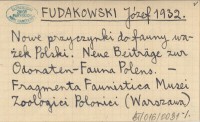 FUDAKOWSKI Józef 1932.
Nowe przyczynki do fauny wa-
żek Polski. Neue Beiträge zur
Odonaten-Fauna Polens. —
Fragmenta Faunistica Musei
Zoologici Polonici (Warszawa)